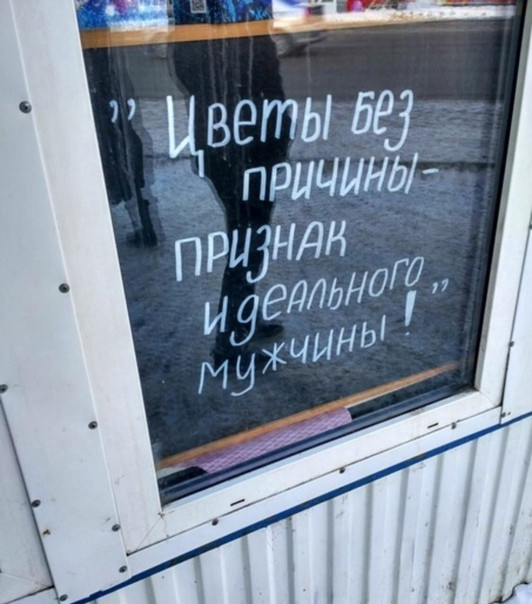 ,, Цветы без
причины -
признак
идеального ,,
мужчины!